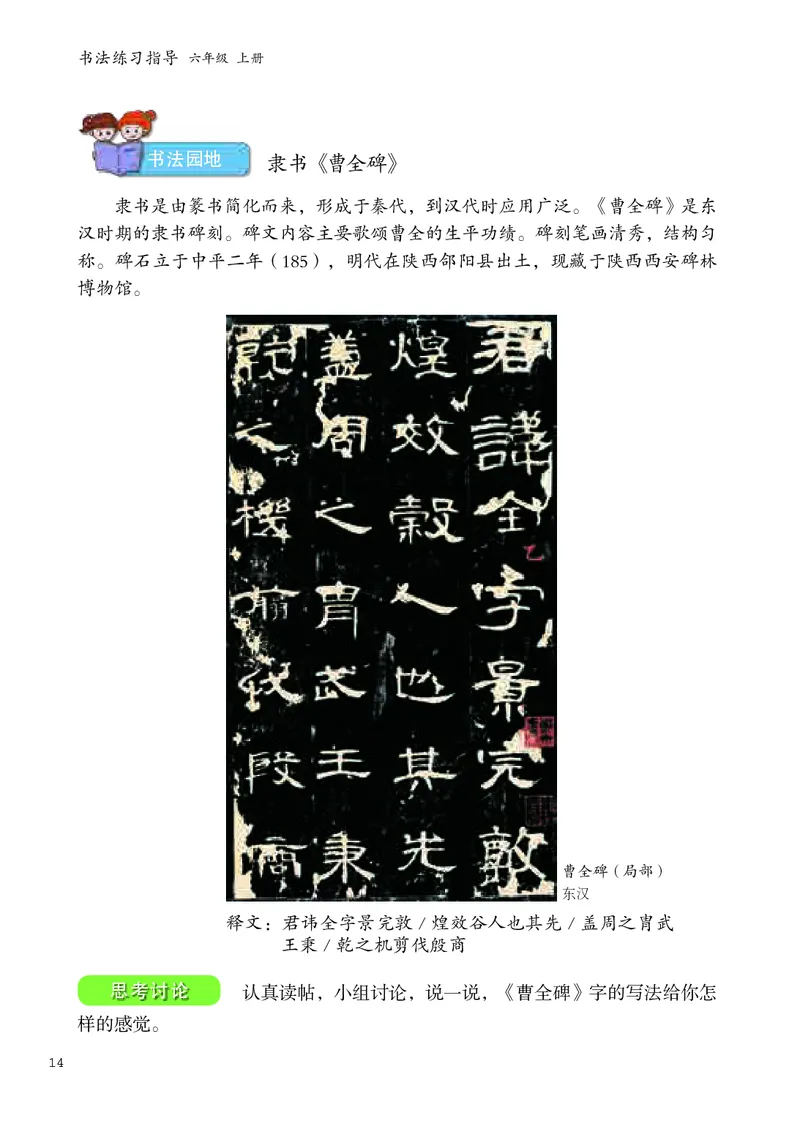 书法练习指导 六年级 上册
书法园地
隶书《曹全碑》
隶书是由篆书简化而来，形成于秦代，到汉代时应用广泛。《曹全碑》是东
汉时期的隶书碑刻。碑文内容主要歌颂曹全的生平功绩。碑刻笔画清秀，结构匀
称。碑石立于中平二年（185），明代在陕西郃阳县出土，现藏于陕西西安碑林
博物馆。
君諱全字景完敦
煌效穀人也其先
蓋周之胄武王秉
乾之機翦伐殷商
曹全碑（局部）
东汉
释文：君讳全字景完敦 / 煌效谷人也其先 / 盖周之胄武
王秉 / 乾之机剪伐殷商
思考讨论
认真读帖，小组讨论，说一说，《曹全碑》字的写法给你怎
样的感觉。
14